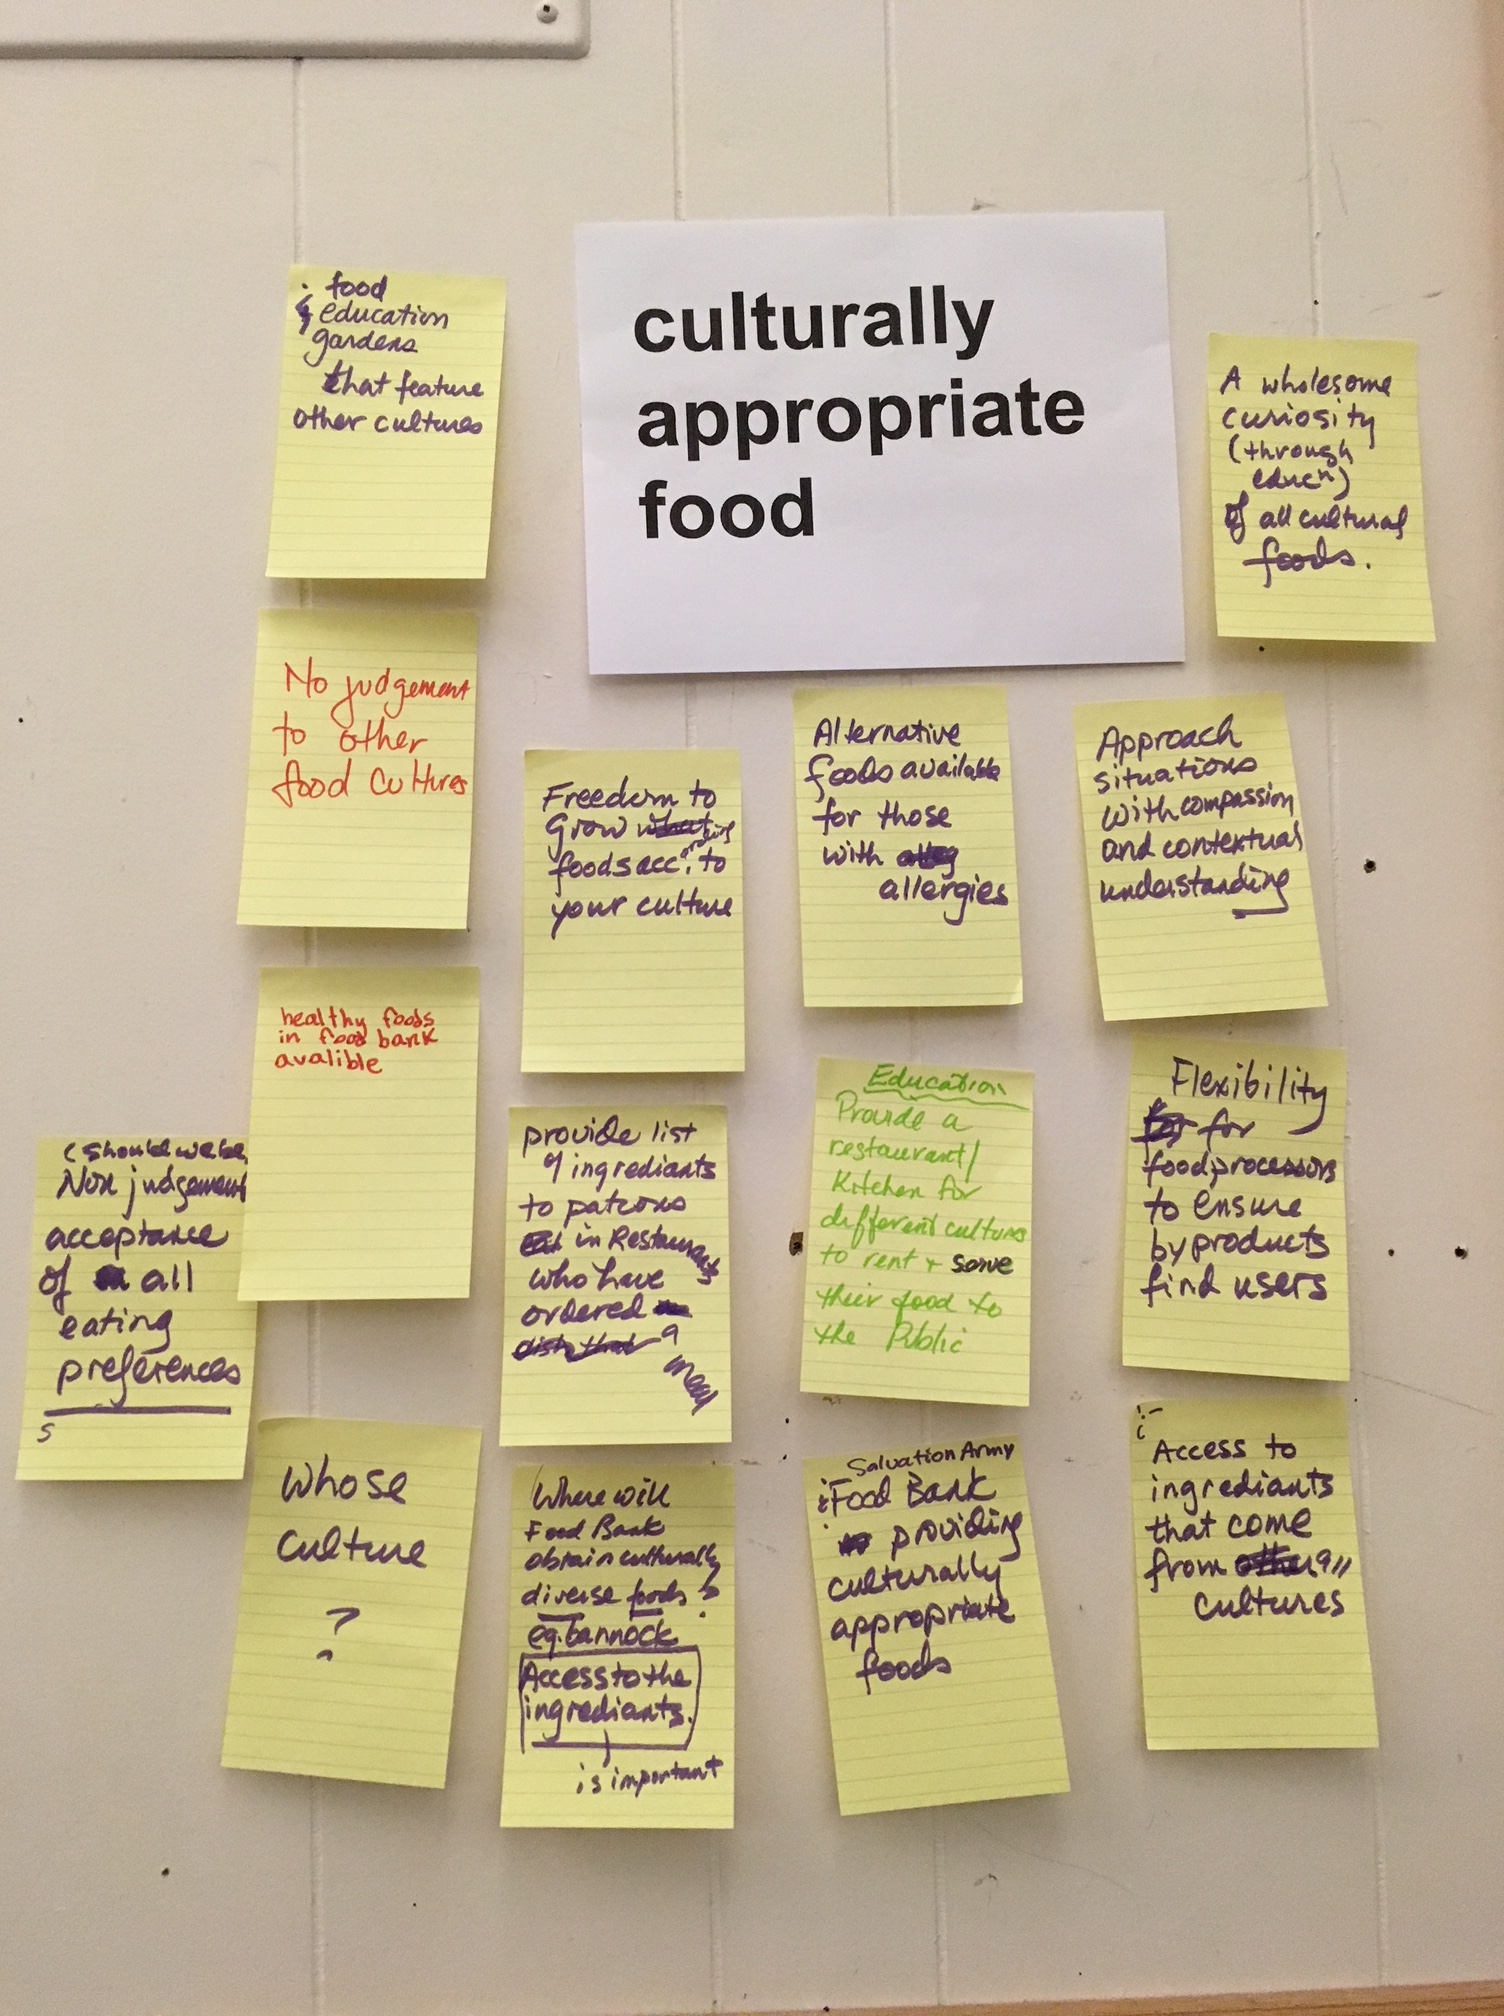 culturally
appropriate
food
food
education
gardens
that feature
other cultures
A wholesome
curiosity
(through
educn)
of all cultural
foods.
No judgement
to other
food cultures
Freedom to
Grow
foods acc. to
your culture
Alternative
foods available
for those
with
allergies
Approach
situations
with compassion
and contextual
understanding
healthy foods
in food bank
avalible
(should we be
Non judgement
acceptance
of all
eating
preferences
s
provide list
of ingrediants
to patrons
in Restaurants
who have
ordered
a
meal
Education
Provide a
restaurant/
Kitchen for
different cultures
to rent + serve
their food to
the Public
Flexibility
for
food processors
to ensure
byproducts
find users
Whose
Culture
?
Where will
Food Bank
obtain culturally
diverse foods?
eg. bannock
Access to the
ingrediants.
is important
Salvation Army
Food Bank
providing
culturally
appropriate
foods
Access to
ingrediants
that come
from all
cultures